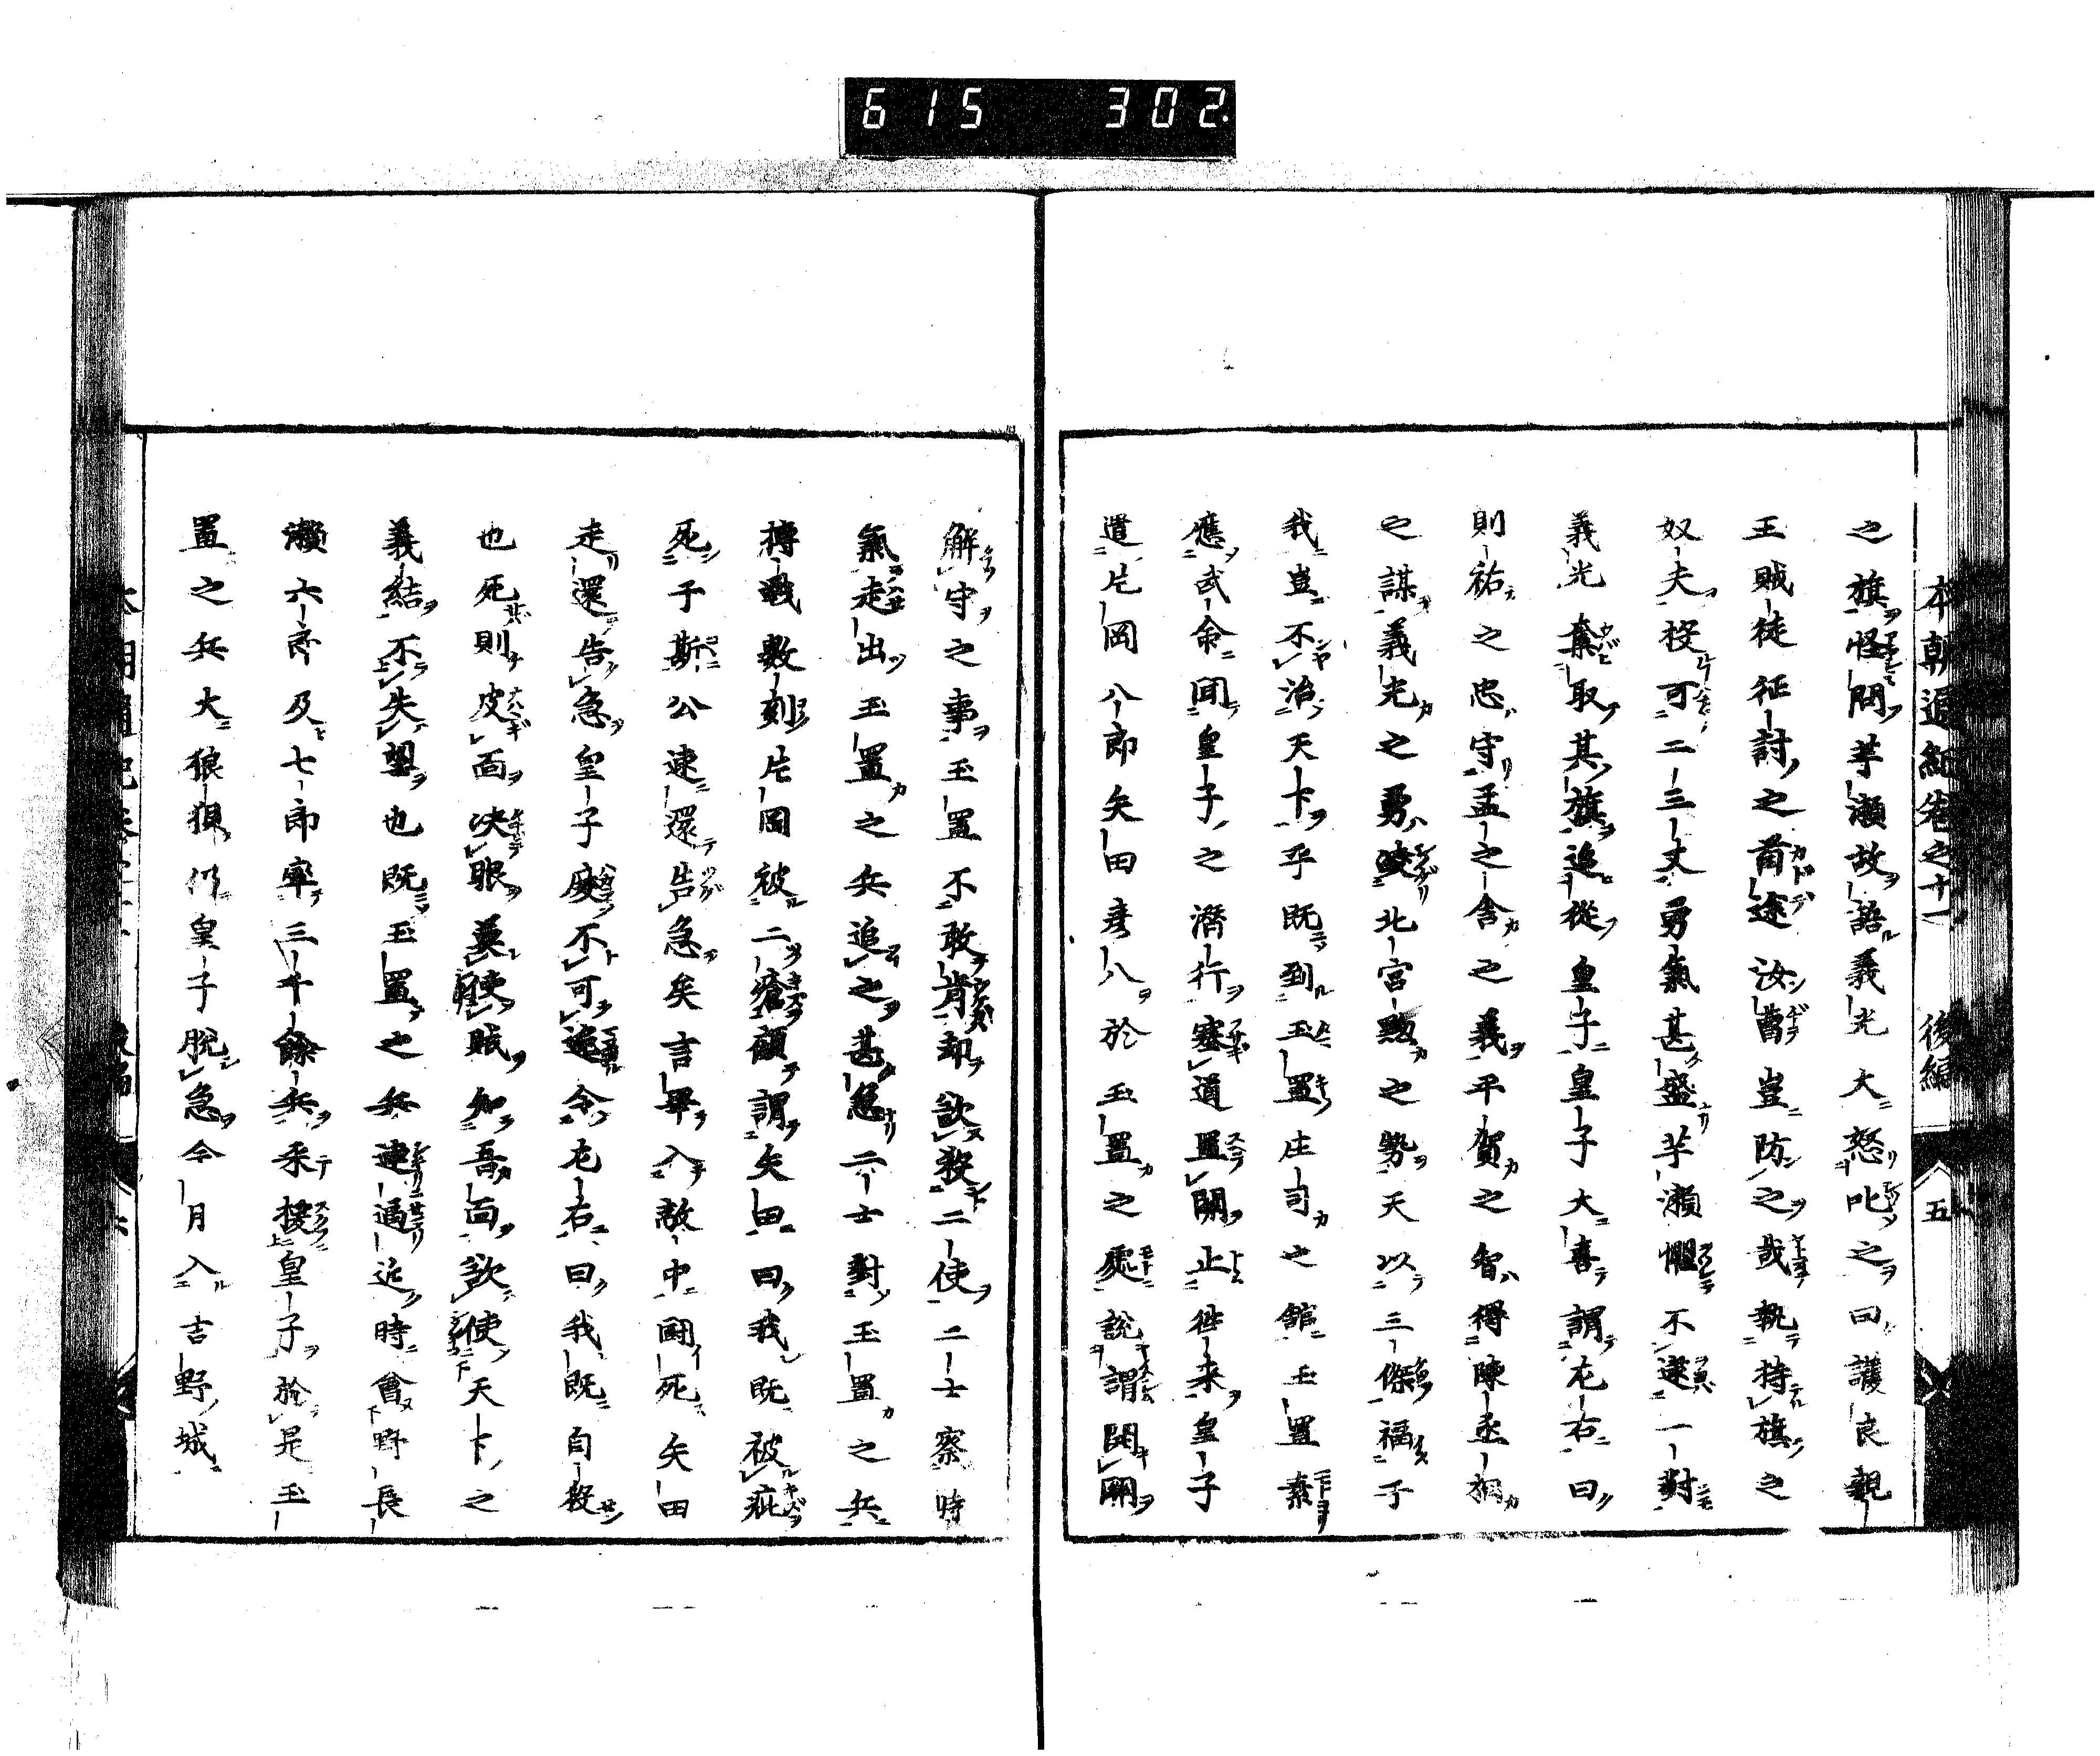 615 302.
本朝通紀卷之十一 後編 五
之旗怪問芋瀬故語義光大怒叱之曰護良親
王賊徒征討之首途汝曹豈防之哉執持旗之
奴夫投可二三丈勇氣甚盛芋瀬懼不遂一對
義光奪取其旗追從皇子皇子大喜謂左右曰
則祐之忠守孟之舎之義平賀之智得陳丞相
之謀義光之勇凌北宮黝之勢天以三傑福于
我豈不治天下乎既到玉置庄司之館玉置素
應武命聞皇子之潜行塞道置關止徃来皇子
遣片岡八郎矢田彦八於玉置之處說謂開關
解守之事玉置不敢肯却欲殺二使二士察時
氣走出玉置之兵追之甚急二士對玉置之兵
搏戰數刻片岡被二瘡顧謂矢田曰我既被疵
死于斯公速還告急矣言畢入敵中闘死矢田
走還告急皇子慮不可遁令左右曰我既自殺
也死則皮面決眼莫使賊知吾面欲使天下之
義結不失望也既玉置之兵連逼近時會野長
瀬六郎及七郎率三千餘兵来援皇子於是玉
置之兵大狼狽仍皇子脫急今月入吉野城